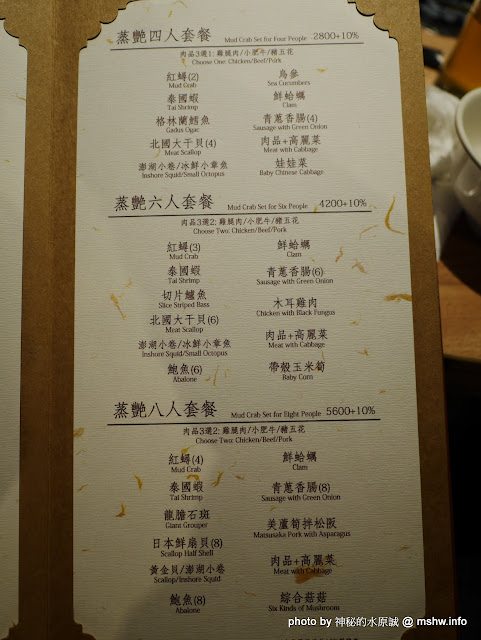 蒸艷四人套餐 Mud Crab Set for Four People 2800+10%
肉品3選1: 雞腿肉/小肥牛/豬五花
Choose One: Chicken/Beef/Pork
紅蟳(2)
Mud Crab
烏參
Sea Cucumbers
泰國蝦
Tai Shrimp
鮮蛤蠣
Clam
格林蘭鱈魚
Gadus Ogac
青蔥香腸(4)
Sausage with Green Onion
北國大干貝(4)
Meat Scallop
肉品+高麗菜
Meat with Cabbage
澎湖小卷/冰鮮小章魚
Inshore Squid/Small Octopus
娃娃菜
Baby Chinese Cabbage
蒸艷六人套餐 Mud Crab Set for Six People 4200+10%
肉品3選2: 雞腿肉/小肥牛/豬五花
Choose Two: Chicken/Beef/Pork
紅蟳(3)
Mud Crab
鮮蛤蠣
Clam
泰國蝦
Tai Shrimp
青蔥香腸(6)
Sausage with Green Onion
切片鱸魚
Slice Striped Bass
木耳雞肉
Chicken with Black Fungus
北國大干貝(6)
Meat Scallop
肉品+高麗菜
Meat with Cabbage
澎湖小卷/冰鮮小章魚
Inshore Squid/Small Octopus
鮑魚(6)
Abalone
帶殼玉米筍
Baby Corn
蒸艷八人套餐 Mud Crab Set for Eight People 5600+10%
肉品3選2: 雞腿肉/小肥牛/豬五花
Choose Two: Chicken/Beef/Pork
紅蟳(4)
Mud Crab
鮮蛤蠣
Clam
泰國蝦
Tai Shrimp
青蔥香腸(8)
Sausage with Green Onion
龍膽石斑
Giant Grouper
美蘆筍拌松阪
Matsusaka Pork with Asparagus
日本鮮扇貝(8)
Scallop Half Shell
肉品+高麗菜
Meat with Cabbage
黃金貝/澎湖小卷
Scallop/Inshore Squid
鮑魚(8)
Abalone
綜合菇菇
Six Kinds of Mushroom
photo by 神秘的水原誠 @ mshw.info